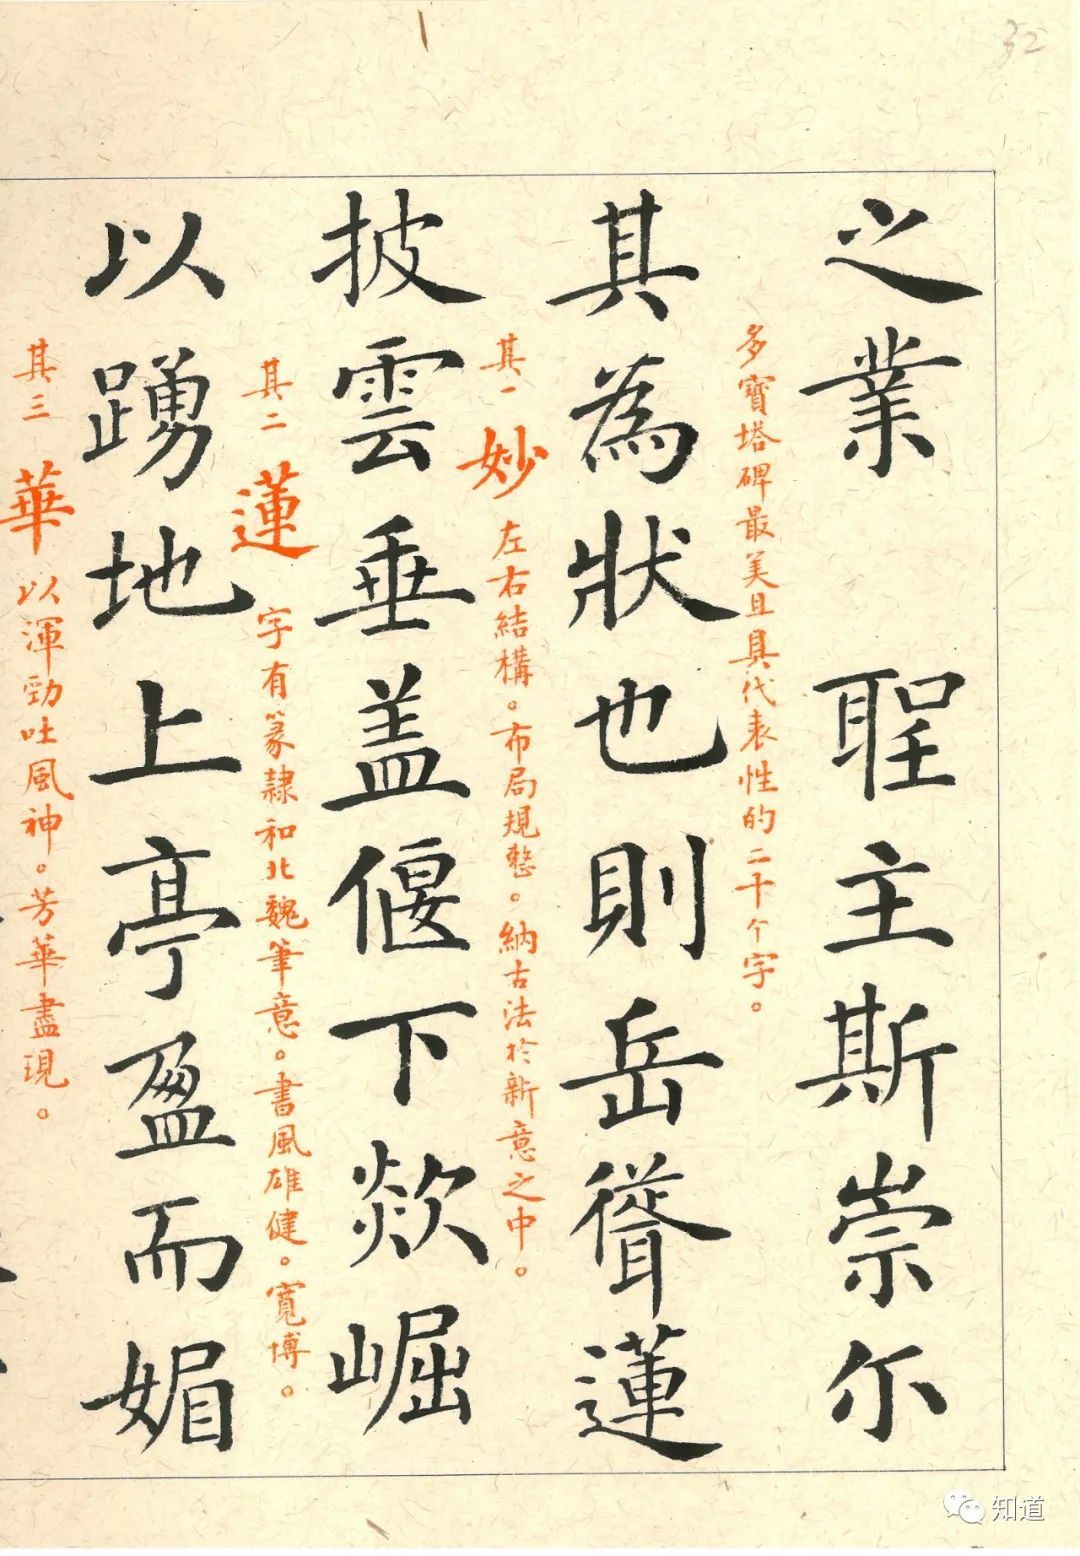 32
之業 聖主斯崇尒
多寶塔碑最美且具代表性的二十个字。
其為狀也則岳聳蓮
其一 妙 左右結構。布局規整。納古法於新意之中。
披雲垂盖偃下欻崛
其二 蓮 字有篆隸和北魏筆意。書風雄健。寬博。
以踴地上亭盈而媚
其三 華 以渾勁吐風神。芳華盡現。
知道